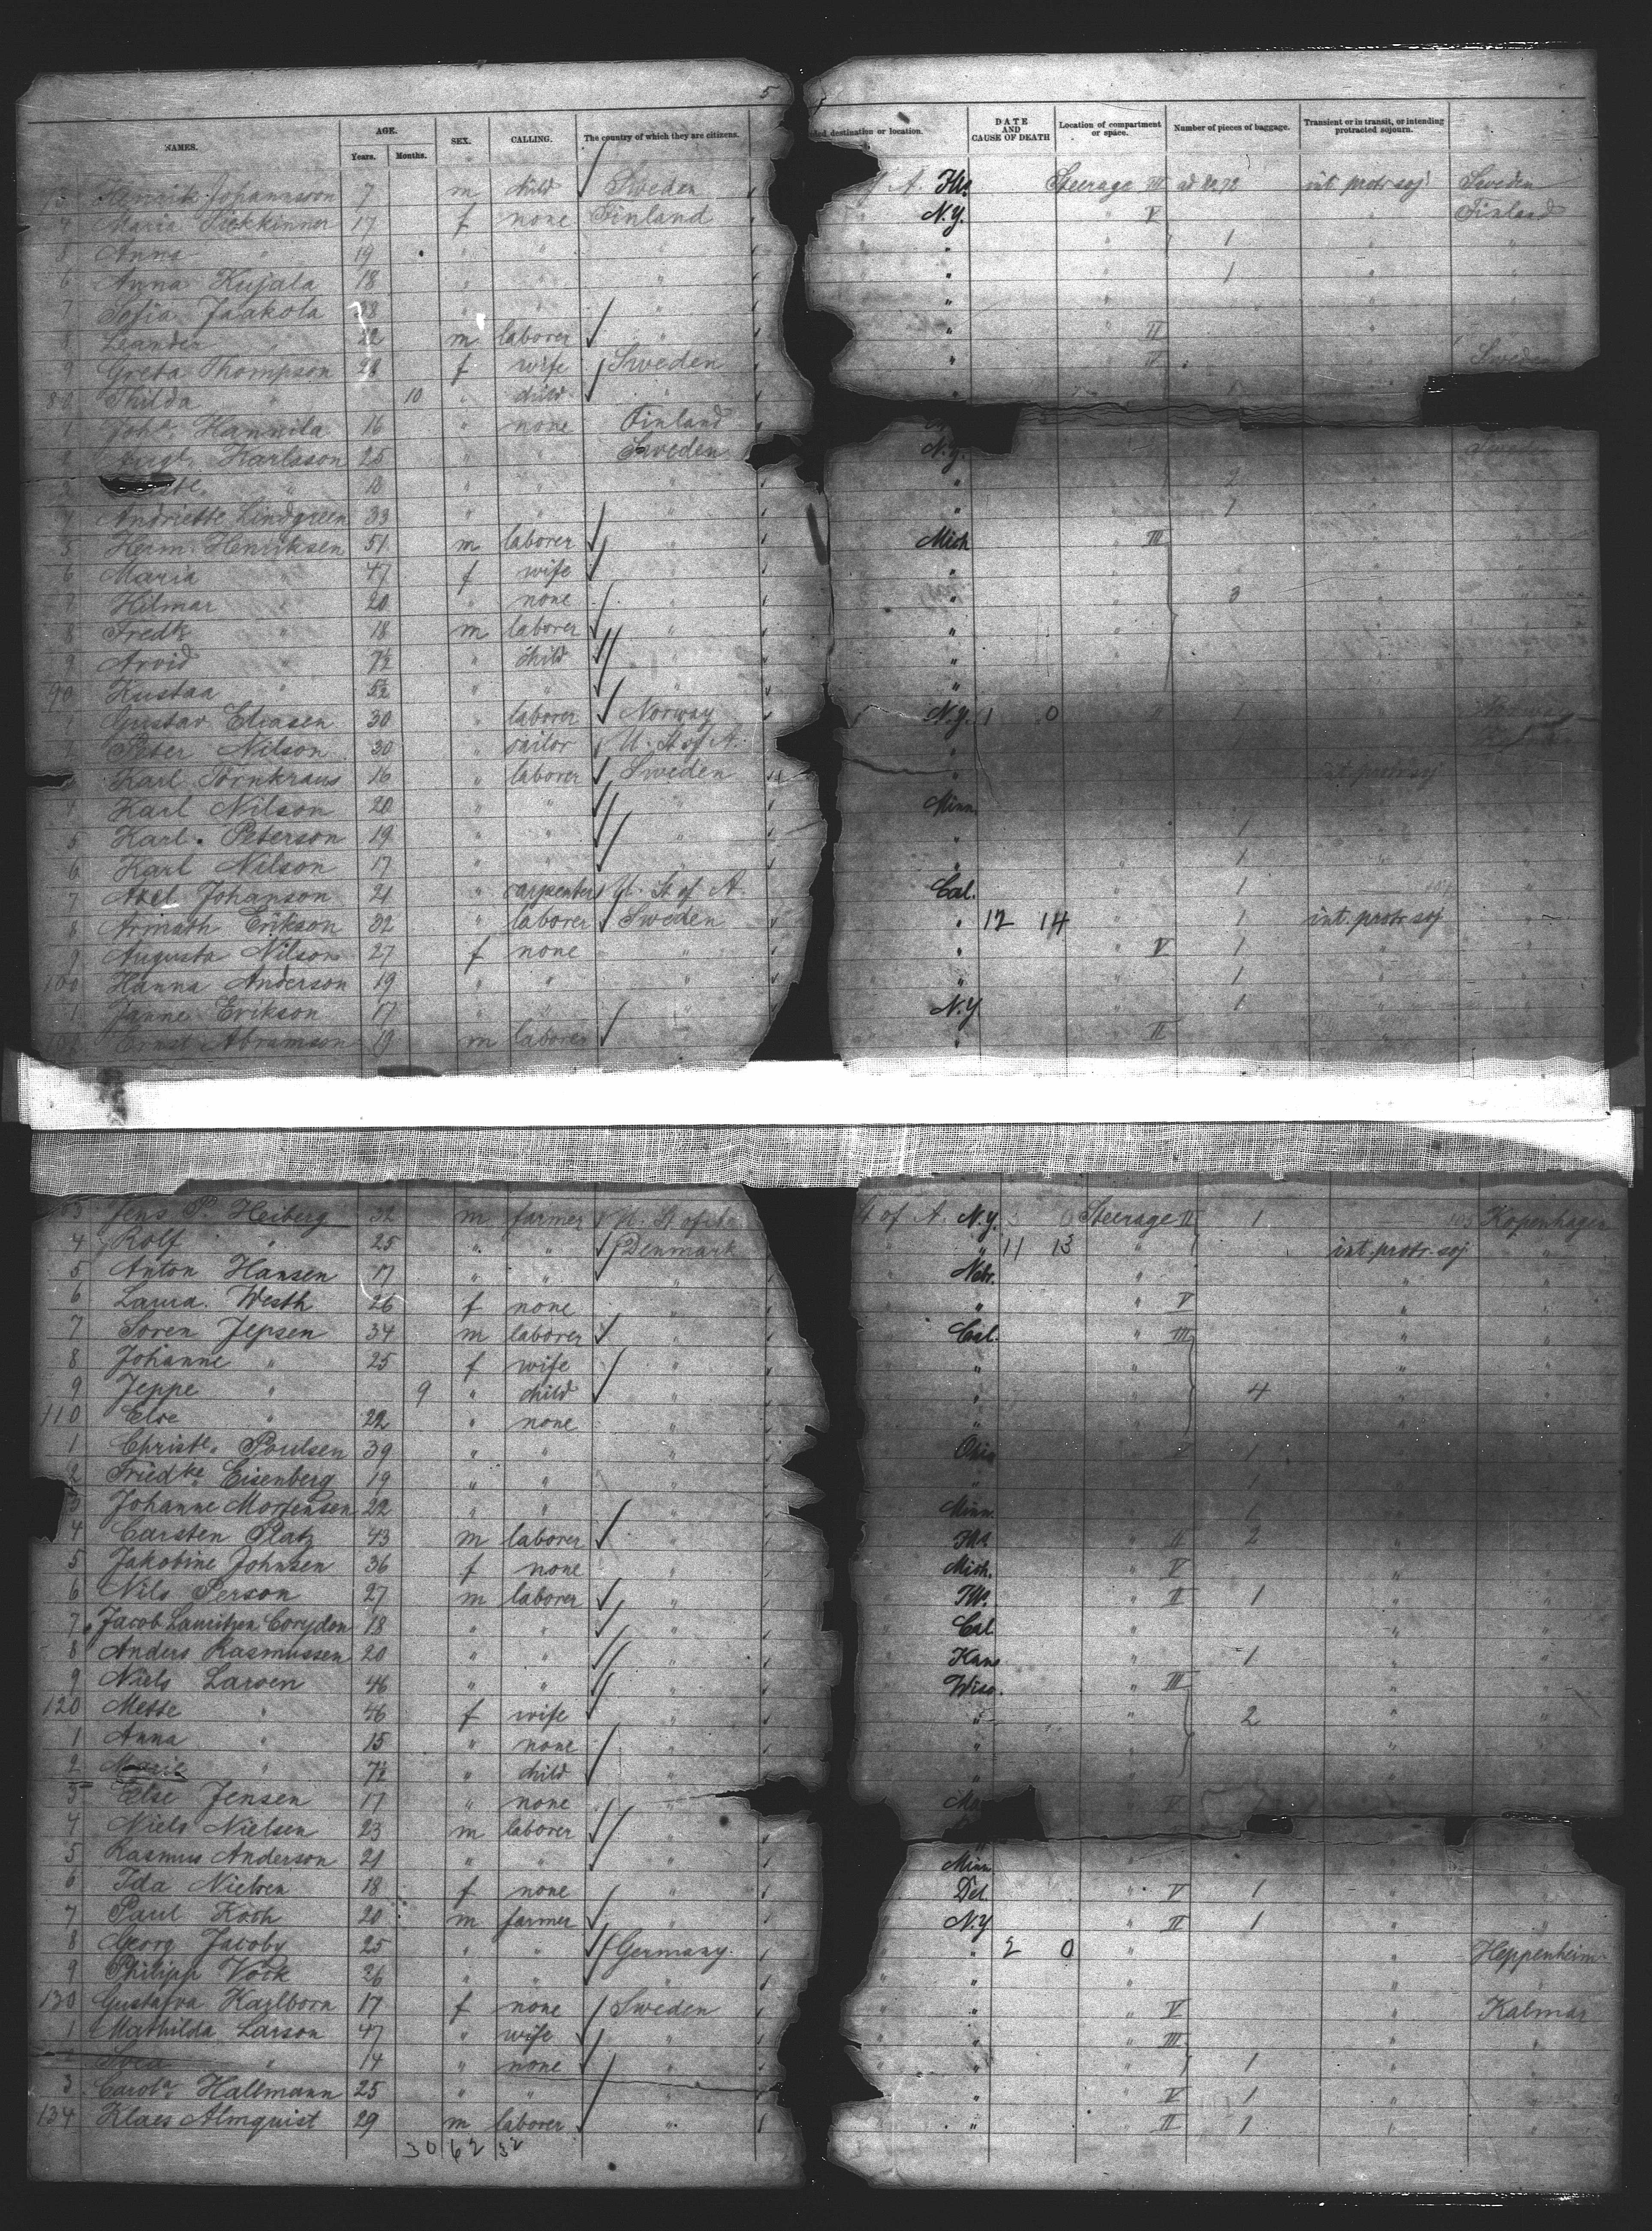 5 5
NAMES. AGE. Years. Months. SEX. CALLING. The country of which they are citizens. destination or location. DATE AND CAUSE OF DEATH Location of compartment or space. Number of pieces of baggage. Transient or in transit, or intending protracted sojourn.
Henrik Johannsson 7 m child Sweden A. Ills. Steerage III int protr soj Sweden
4 Maria 17 f none Finland N.Y. " V Finland
Anna " 19 " " " " " 1 " "
6 Anna Kujala 18 " " " " " 1 " "
7 Sofia Jaakola 38 " " " " " " "
8 Leander " 22 m laborer " " II " "
9 Greta Thompson 28 f wife Sweden " V " Sweden
80 Thilda " 10 " child " "
1 Joha. Hannila 16 " none Finland
2 Karlsson 25 " " Sweden N.Y. Sweden
18 " " " " 2
4 Andriette Lindgreen 33 " " " " 1
5 Herm. Henriksen 51 m laborer " Mich " III
6 Maria " 47 f wife " "
7 Hilmar " 20 " none " " 3
8 Fredk " 18 m laborer " "
9 Arvid " 7½ " child " "
90 Kustaa " 5½ " " " "
1 Gustav Eliasen 30 " laborer Norway N.Y. 1 0 II 1 Norway
2 Peter Nilson 30 " sailor U. St of A. "
Karl Törnkraus 16 " laborer Sweden " int. protr soj
4 Karl Nilson 20 " " " Minn.
5 Karl. Peterson 19 " " " " 1
6 Karl Nilson 17 " " " " " 1 " "
7 Axel Johanson 21 " carpenter U. St of A. Cal. " 1 "
8 Armath Erikson 32 " laborer Sweden " 12 14 " 1 int. protr. soj "
9 Augusta Nilson 27 f none " " " V 1 " "
100 Hanna Anderson 19 " " " " " 1 " "
1 Janne Erikson 17 " " " N.Y " 1 " "
102 Ernst Abramson 19 m laborer " " II " "
103 Jens P. Heiberg 32 m farmer U. St of A. St of A. N.Y. Steerage II 1 Kopenhagen
4 Rolf " 25 " " Denmark " " 11 13 " 1 int. protr. soj "
5 Anton Hansen 17 " " " " Nebr. " " "
6 Laura. Westh 26 f none " " " " V " "
7 Soren Jepsen 34 m laborer " " Cal. " III " "
8 Johanne " 25 f wife " " " " " "
9 Jeppe " 9 " child " " " " 4 " "
110 Else " 22 " none " " " " " "
1 Christe. Poulsen 39 " " " Ohio " V 1 " "
2 Friedke Eisenberg 19 " " " " " 1 " "
3 Johanne Mortensen 22 " " " Minn. " 1 " "
4 Carsten Platz 43 m laborer " Ills " II 2 " "
5 Jakobine Johnsen 36 f none " Mich. " V " "
6 Nils Person 27 m laborer " Ills. " II 1 " "
7 Jacob Lauritzen Corydon 18 " " " Cal " " "
8 Anders Rasmussen 20 " " " Kans " 1 " "
9 Niels Larsen 46 " " " Wisc. " III " "
120 Mette " 46 f wife " " " 2 " "
1 Anna " 15 " none " " " " "
2 Marie " 7½ " child " " " " "
3 Else Jensen 17 " none " V
4 Niels Nielsen 23 m laborer " "
5 Rasmus Anderson 21 " " " Minn " " "
6 Ida Nielsen 18 f none " Del. " V 1 " "
7 Paul Koch 20 m farmer " " N.Y " II 1 " "
8 Georg Jacoby 25 " " Germany. " " 2 0 " " Heppenheim
9 Philipp Vock 26 " " " " " " " "
130 Gustafva Karlborn 17 f none Sweden " " " V " Kalmar
1 Mathilda Larson 47 " wife " " " " III " "
2 Svea " 14 " none " " " " 1 " "
3 Carola Hallmann 25 " " " " " " V 1 " "
134 Klaes Almquist 29 m laborer " " " " II 1 " "
30 62 32